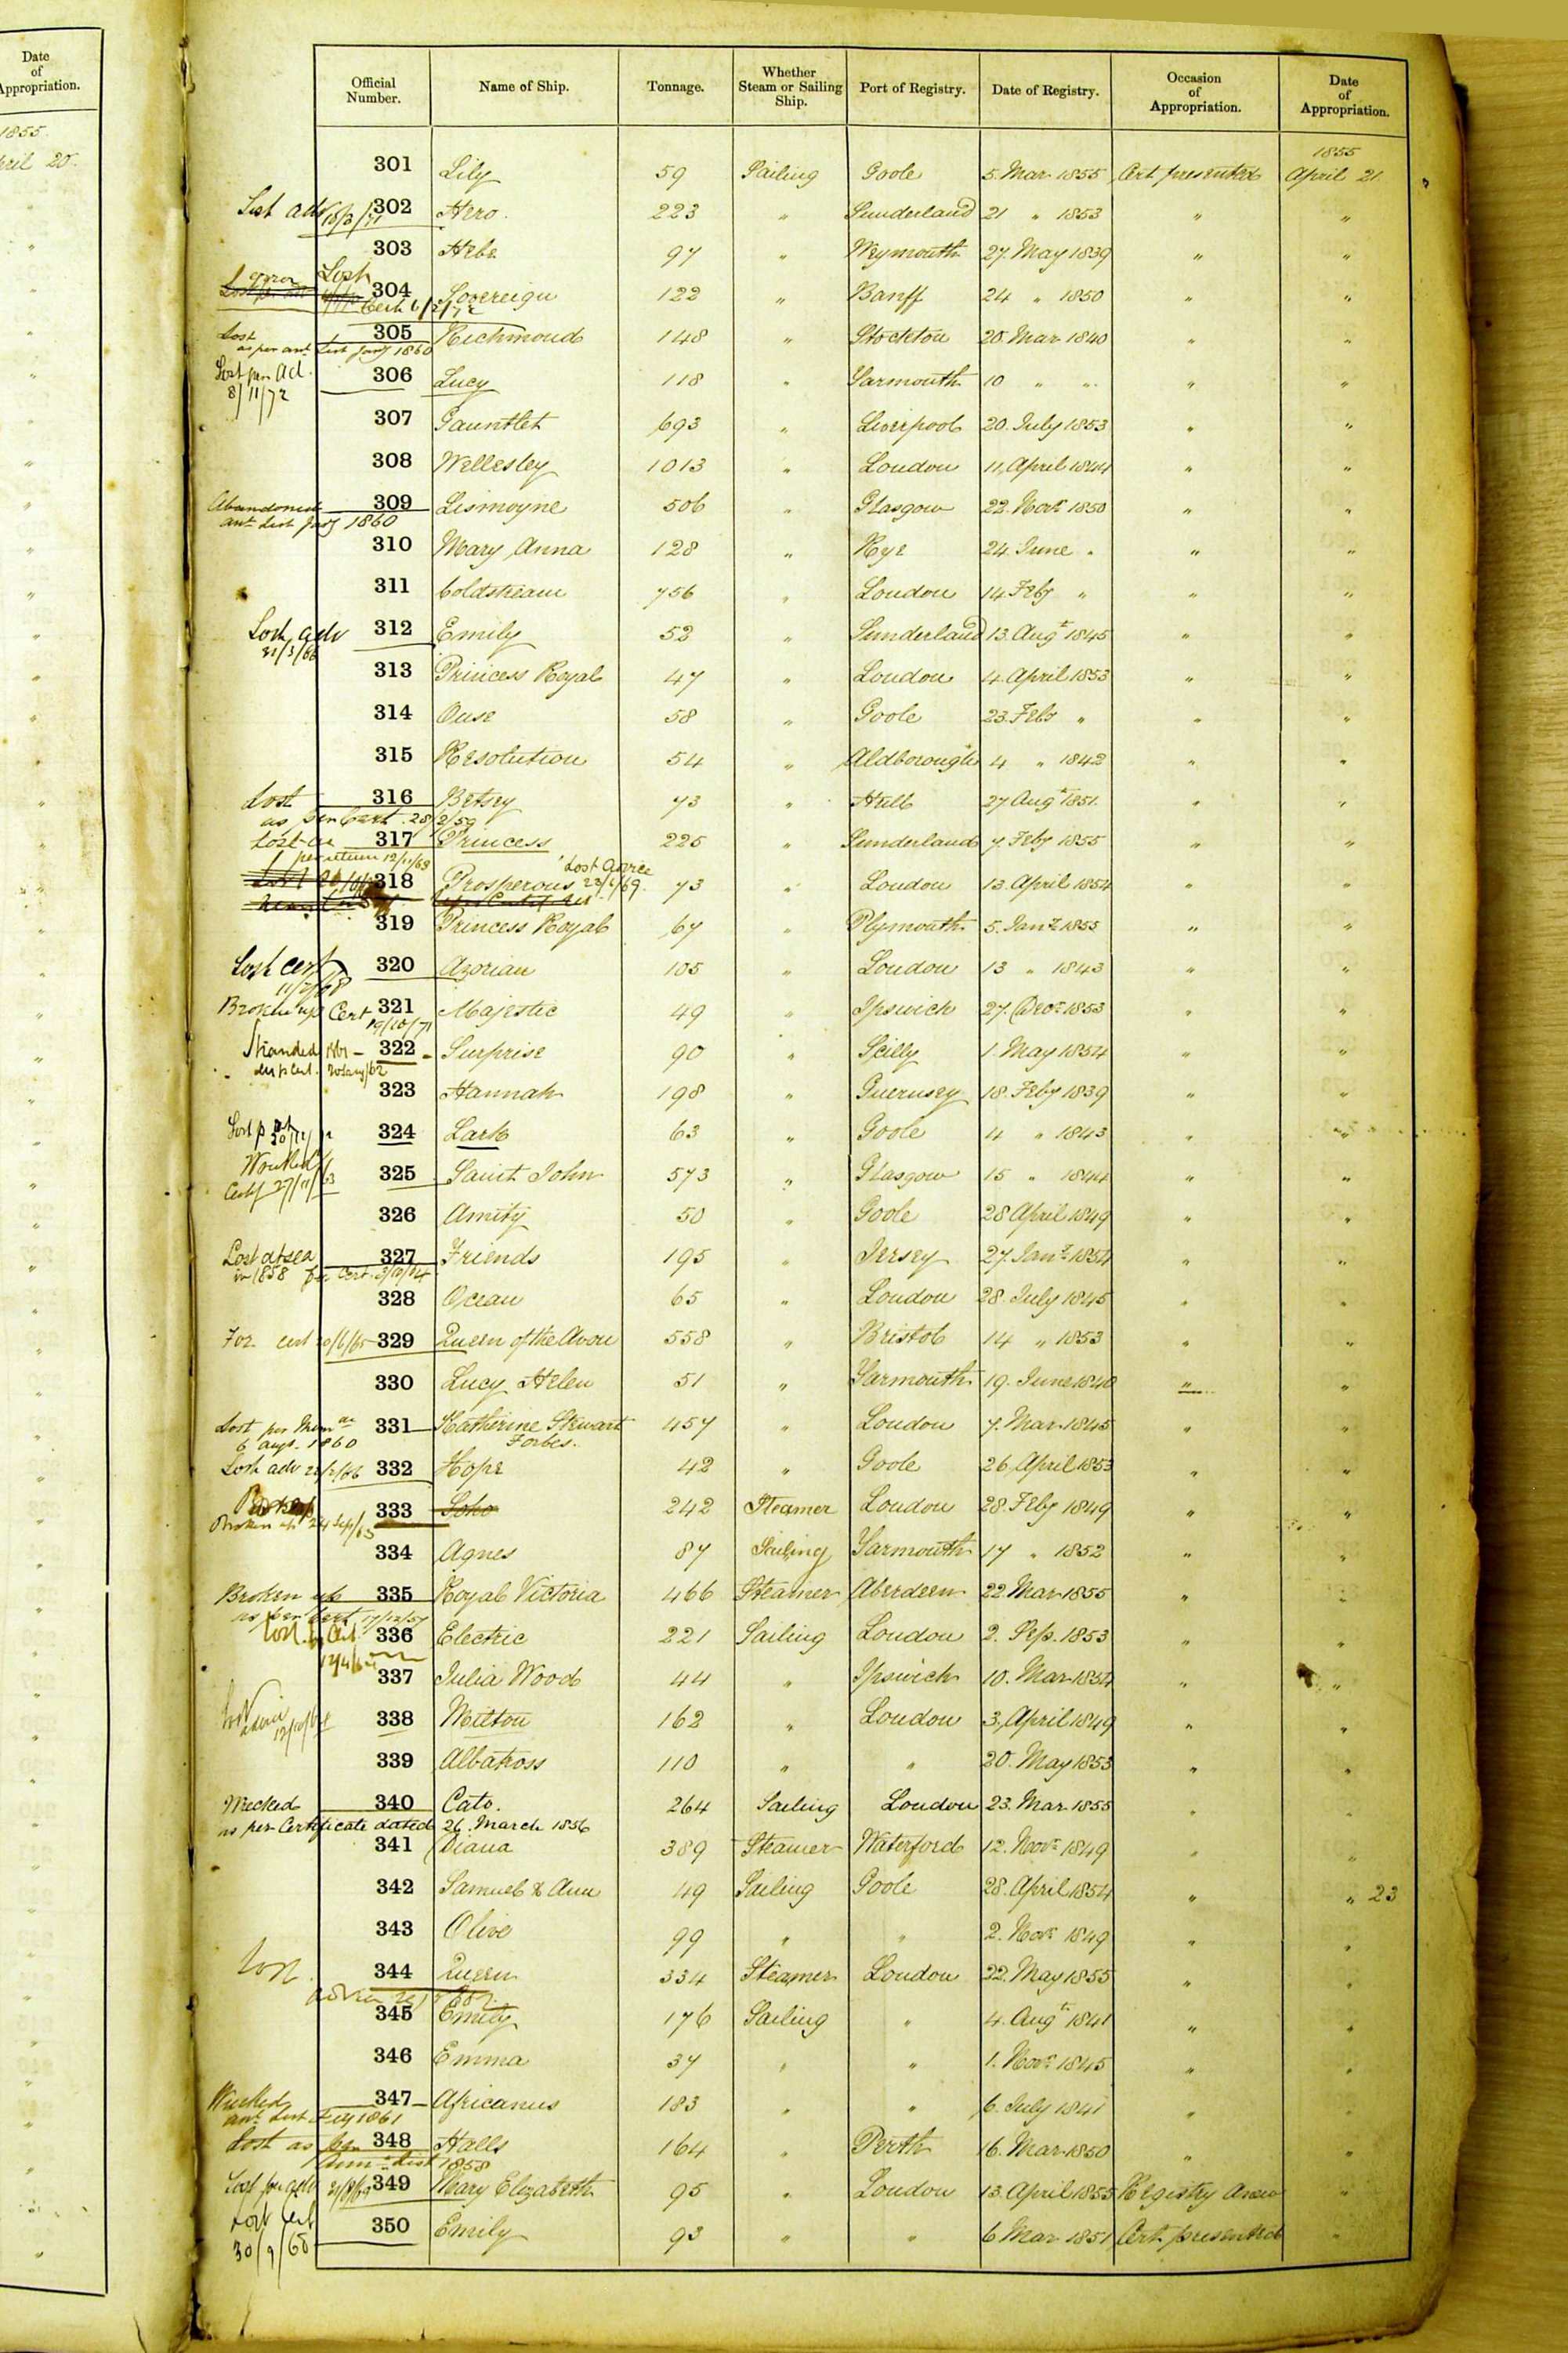 Date of Appropriation.
1855.
April 20.
Official Number. Name of Ship. Tonnage. Whether Steam or Sailing Ship. Port of Registry. Date of Registry. Occasion of Appropriation. Date of Appropriation.
1855
301 Lily 59 Sailing Goole 5. Mar 1855 Cert presented April 21.
Lost adv 302 Hero. 223 " Sunderland 21 " 1853 " "
303 Hebe 97 " Weymouth 27. May 1839 " "
error Lost
304 Sovereign 122 " Banff 24 " 1850 " "
Cert 6/2/72
Lost 305 Richmond 148 " Stockton 20. Mar 1840 " "
as per ant. List Jany 1860
Lost per Ad. 306 Lucy 118 " Yarmouth 10 " " " "
8/11/72
307 Gauntlet 693 " Liverpool 20. July 1853 " "
308 Wellesley 1013 " London 11, April 1844 " "
Abandoned 309 Lismoyne 506 " Glasgow 22. Novr 1850 " "
ant List Jany 1860
310 Mary Anna 128 " Rye 24. June " " "
311 Coldstream 756 " London 14 Feby " " "
Lost, adv 312 Emily 52 " Sunderland 13. Augt 1845 " "
21/3/66
313 Princess Royal 47 " London 4. April 1853 " "
314 Ouse 58 " Goole 23. Feby " " "
315 Resolution 54 " Aldborough 4 " 1842 " "
Lost 316 Betsey 73 " Hull 27 Augt 1851. " "
as per Cert. 28/2/59
Lost 317 Princess 225 " Sunderland 7 Feby 1855 " "
per return 12/11/63
Lost Advice
318 Prosperous 23/6/69. 73 " London 13. April 1854 " "
319 Princess Royal 67 " Plymouth 5. Jany 1855 " "
Lost cert 320 Azorian 105 " London 13 " 1843 " "
11/2/68
Broken up Cert 321 Majestic 49 " Ipswich 27. Decr 1853 " "
19/10/71
Stranded 1861 - 322 - Surprise 90 " Scilly 1. May 1854 " "
323 Hannah 198 " Guernsey 18. Feby 1839 " "
324 Lark 63 " Goole 4 " 1843 " "
Wrecked 325 Saint John 573 " Glasgow 15 " 1844 " "
Certf 27/11/63
326 Amity 50 " Goole 28 April 1849 " "
Lost at sea 327 Friends 195 " Jersey 27. Jany 1854 " "
in 1858 per Cert.
328 Ocean 65 " London 28. July 1845 " "
For. cert 20/6/65 329 Queen of the Avon 558 " Bristol 14 " 1853 " "
330 Lucy Helen 51 " Yarmouth 19. June 1840 " "
Lost per 331 Katherine Stewart Forbes. 457 " London 7. Mar 1845 " "
6 augt. 1860
Lost adv 332 Hope 42 " Goole 26, April 1853 " "
333 Soho 242 Steamer London 28. Feby 1849 " "
Broken up 24 Sep/63
334 Agnes 87 Sailing Yarmouth 17 " 1852 " "
Broken up 335 Royal Victoria 466 Steamer Aberdeen 22 Mar 1855 " "
as per Cert 17/12/57
Lost. Cert 336 Electric 221 Sailing London 2. Sep. 1853 " "
337 Julia Wood 44 " Ipswich 10. Mar 1854 " "
338 Milton 162 " London 3, April 1849 " "
339 Albatross 110 " " 20. May 1853 " "
Wrecked 340 Cato. 264 Sailing London 23. Mar 1855 " "
as per Certificate dated 26. March 1856
341 Diana 389 Steamer Waterford 12. Novr 1849 " "
342 Samuel & Ann 49 Sailing Goole 28. April 1854 " " 23
343 Olive 99 " " 2. Novr 1849 " "
Lost. 344 Queen 334 Steamer London 22. May 1855 " "
345 Emily 176 Sailing " 4. Augt 1841 " "
346 Emma 37 " " 1. Novr 1845 " "
Wrecked 347 Africanus 183 " " 6. July 1841 " "
ant List Feby 1861
Lost as per 348 Halls 164 " Perth 16. Mar 1850 " "
List 1858
Lost per adv 349 Mary Elizabeth 95 " London 13. April 1855 Registry Anew "
Lost Cert 350 Emily 93 " " 6 Mar 1851 Cert. presented "
30/9/68